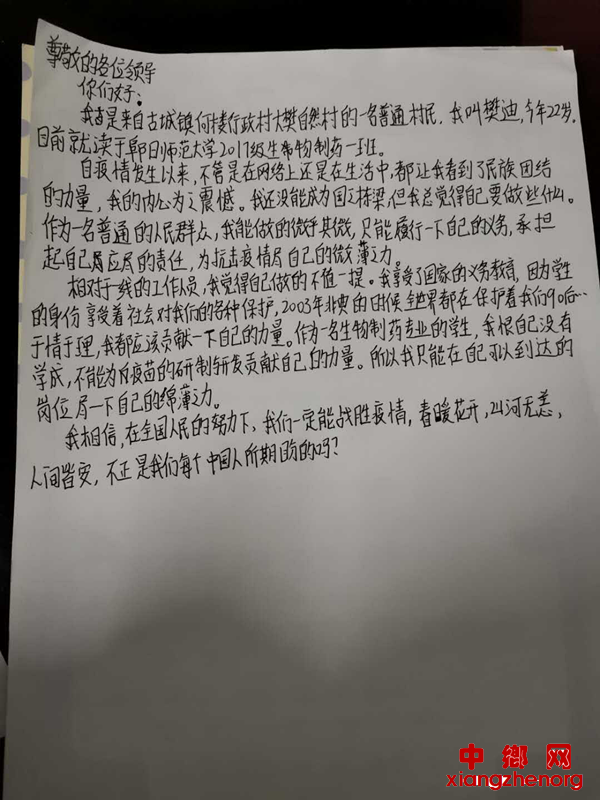 尊敬的各位领导
你们好：
我是来自古城镇何楼行政村大樊自然村的一名普通村民，我叫樊迪，今年22岁，
目前就读于师范大学2017级生物制药一班。
自疫情发生以来，不管是在网络上还是在生活中，都让我看到了民族团结
的力量，我的内心为之震憾。我还没能成为国之栋梁，但我总觉得自己要做些什么。
作为一名普通的人民群众，我能做的微乎其微，只能履行一下自己的义务，承担
起自己应尽的责任，为抗击疫情尽自己的微薄之力。
相对于一线的工作人员，我觉得自己做的不值一提。我享受了国家的义务教育，因为学生
的身份享受着社会对我们的各种保护，2003年非典的时候全世界都在保护着我们90后…
于情于理，我都应该贡献一下自己的力量。作为一名生物制药专业的学生，我恨自己没有
学成，不能为疫苗的研制研发贡献自己的力量。所以我只能在自己可以到达的
岗位尽一下自己的绵薄之力。
我相信，在全国人民的努力下，我们一定能战胜疫情，春暖花开，山河无恙，
人间皆安，不正是我们每个中国人所期盼的吗？
中鄉网
xiangzhenorg